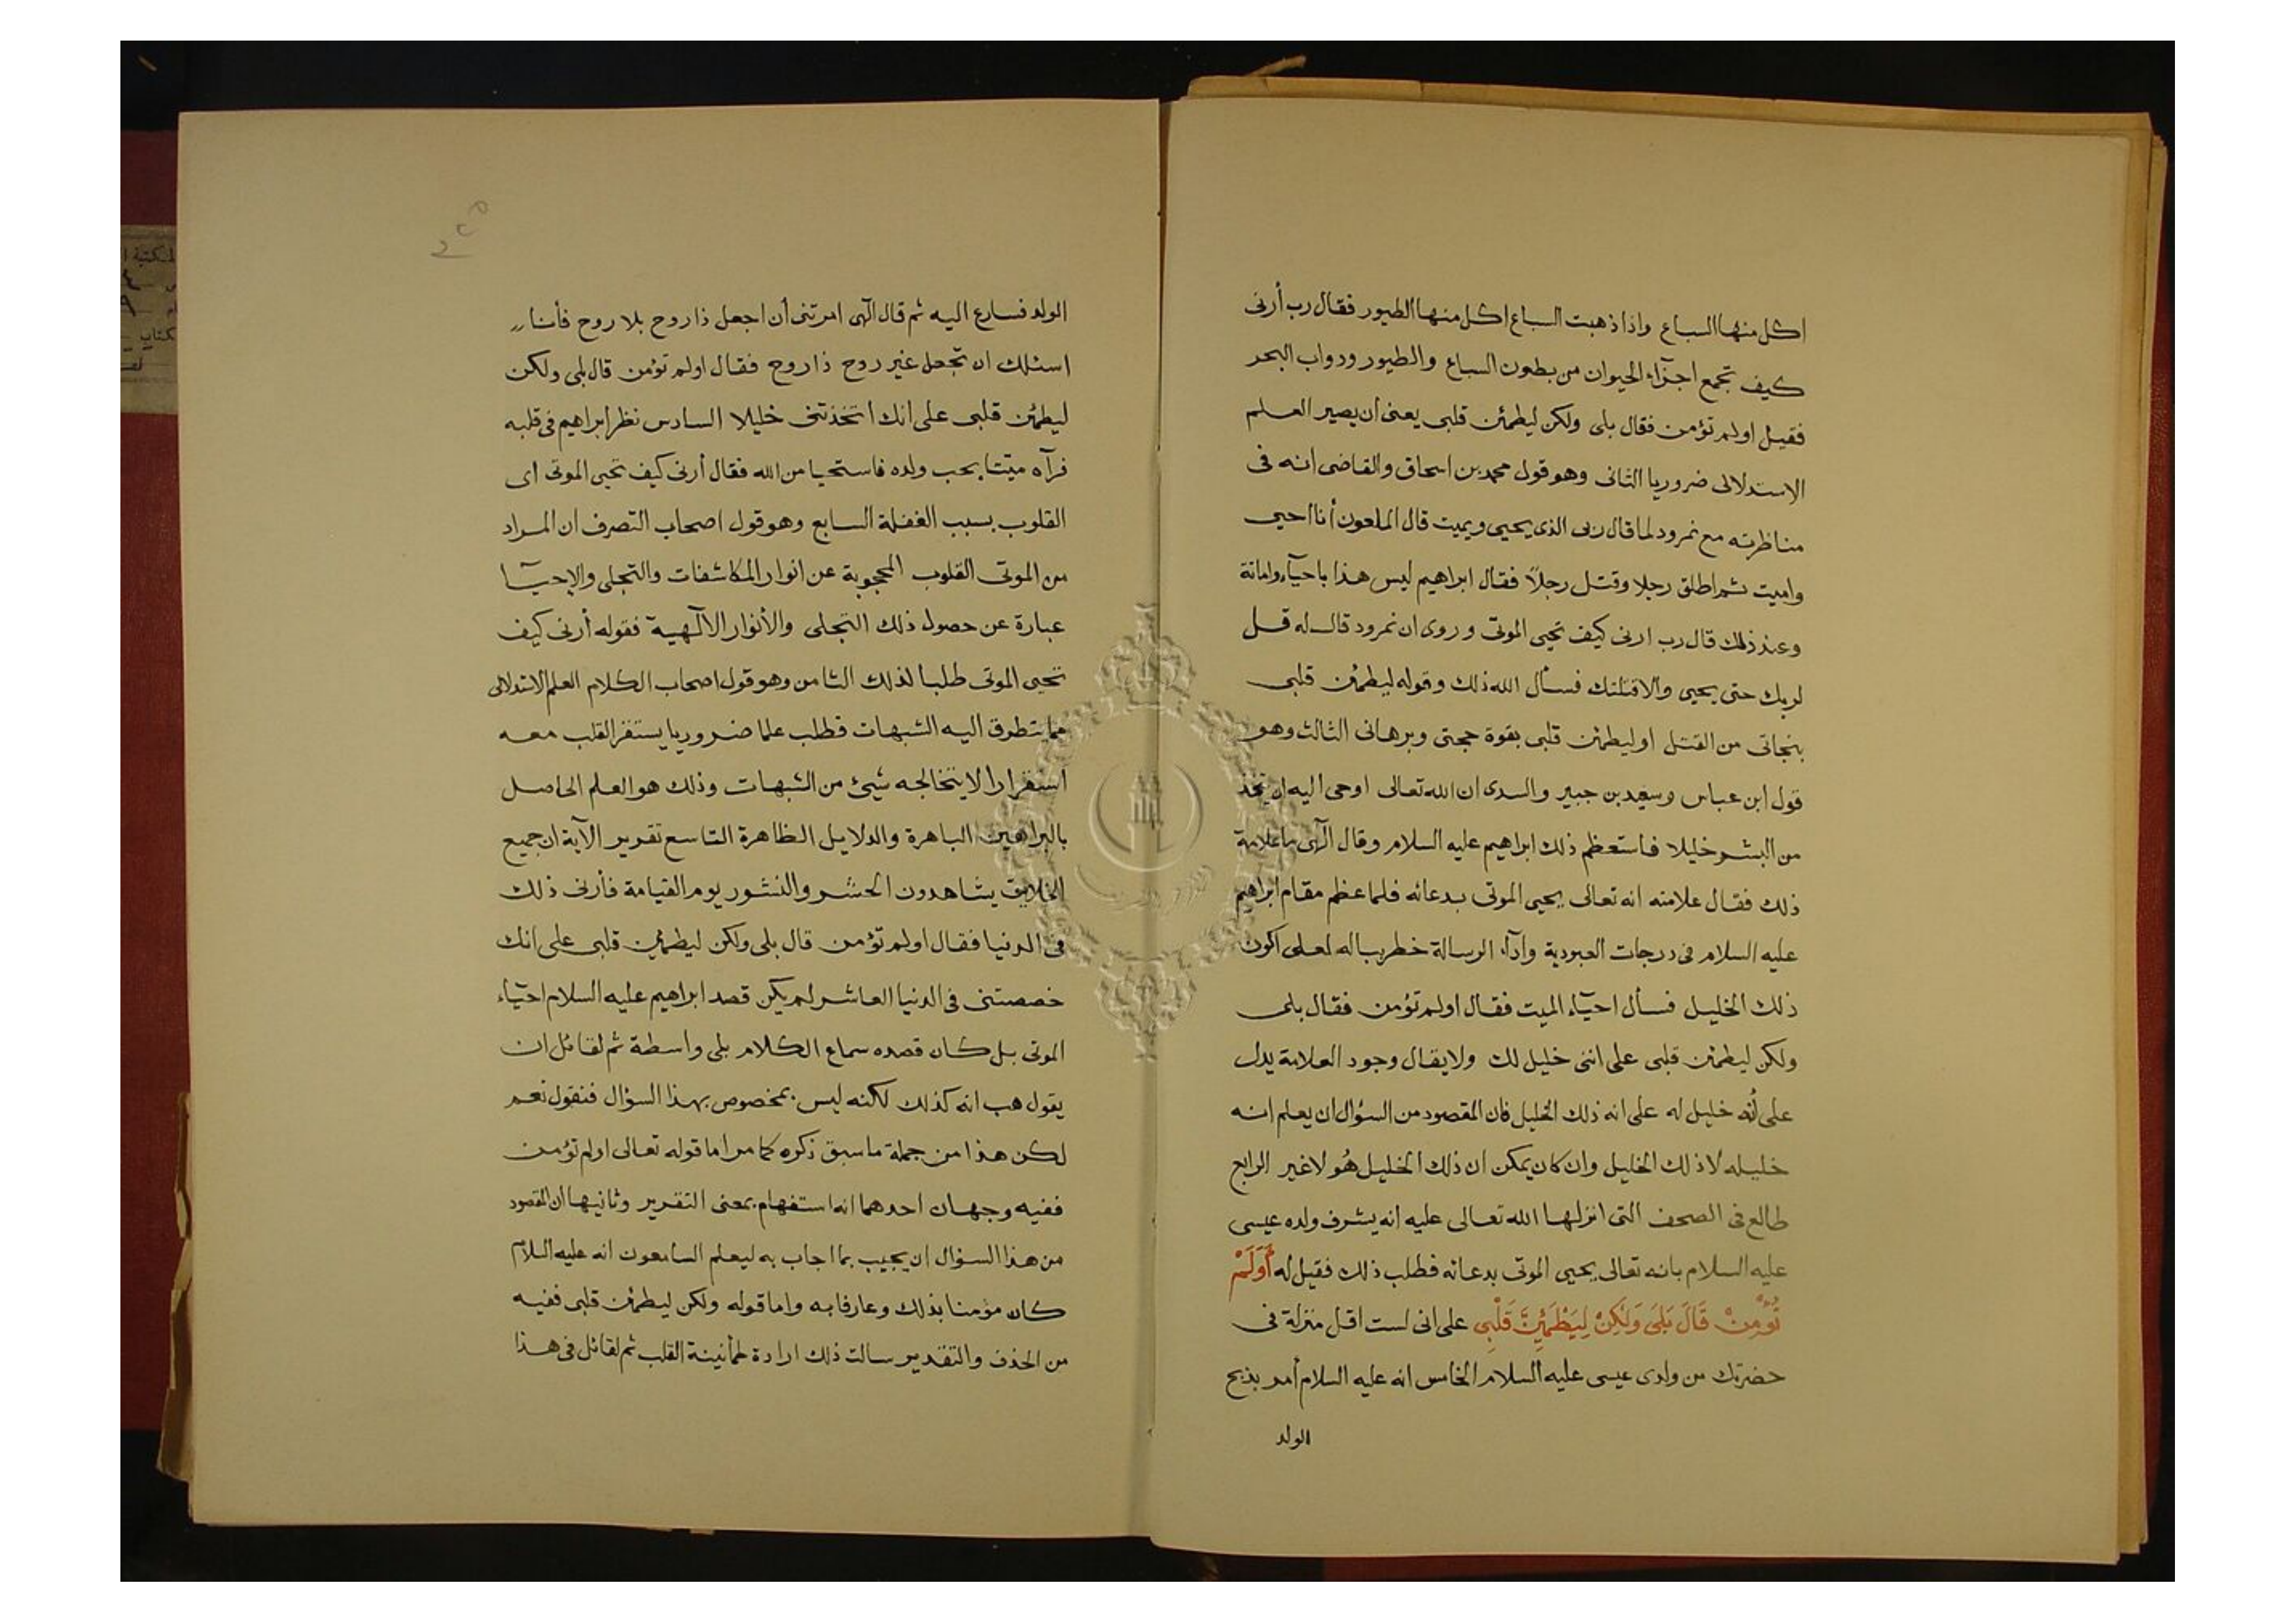 اكل منها السباع واذا ذهبت السباع اكل منها الطيور فقال رب أرنى
كيف تجمع اجزآء الحيوان من بطون السباع والطيور ودواب البحر
فقيل اولم تؤمن فقال بلى ولكن ليطمئن قلبى يعنى ان يصير العلم
الاستدلالى ضروريا الثانى وهو قول محمد بن اسحاق والقاضى انه فى
مناظرته مع نمرود لما قال ربى الذى يحيى ويميت قال الملعون أنا احيى
واميت ثم اطلق رجلا وقتل رجلاً فقال ابراهيم ليس هذا باحيآء وامانة
وعند ذلك قال رب ارنى كيف تحيى الموتى وروى ان نمرود قال له قل
لربك حتى يحيى والا قتلتك فسأل الله ذلك وقوله ليطمئن قلبى
بنجاتى من القتل او ليطمئن قلبى بقوة حجتى وبرهانى الثالث وهو
قول ابن عباس وسعيد بن جبير والسدى ان الله تعالى اوحى اليه ان يتخذ
من البشر خليلا فاستعظم ذلك ابراهيم عليه السلام وقال آلهى ما علامة
ذلك فقال علامته انه تعالى يحيى الموتى بدعائه فلما عظم مقام ابراهيم
عليه السلام فى درجات العبودية وادآء الرسالة خطر بباله لعلى اكون
ذلك الخليل فسأل احيآء الميت فقال اولم تؤمن فقال بلى
ولكن ليطمئن قلبى على اننى خليل لك ولا يقال وجود العلامة يدل
على أنه خليل له على انه ذلك الخليل فان المقصود من السؤال ان يعلم انه
خليله لا ذلك الخليل وان كان يمكن ان ذلك الخليل هُو لا غير الرابع
طالع فى الصحف التى انزلها الله تعالى عليه انه يشرف ولده عيسى
عليه السلام بانه تعالى يحيى الموتى بدعائه فطلب ذلك فقيل له أَوَلَمْ
تُؤْمِنْ قَالَ بَلَى وَلَكِنْ لِيَطْمَئِنَّ قَلْبِى على انى لست اقل منزلة فى
حضرتك من ولدى عيسى عليه السلام الخامس انه عليه السلام أمر بذبح
الولد
الولد فسارع اليه ثم قال آلهى امرتنى أن اجعل ذا روح بلا روح فأنا
اسئلك ان تجعل غير روح ذا روح فقال اولم تؤمن قال بلى ولكن
ليطمئن قلبى على انك اتخذتنى خليلا السادس نظر ابراهيم فى قلبه
فرآه ميتا بحب ولده فاستحيا من الله فقال أرنى كيف تحيى الموتى اى
القلوب بسبب الغفلة السابع وهو قول اصحاب التصرف ان المراد
من الموتى القلوب المحجوبة عن انوار المكاشفات والتجلى والإحيآ
عبارة عن حصول ذلك التجلى والأنوار الآلهية فقوله أرنى كيف
تحيى الموتى طلبا لذلك الثامن وهو قول اصحاب الكلام العلم الاستدلالى
مما يتطرق اليه الشبهات فطلب علما ضروريا يستقر القلب معه
استقرارا لا يتخالجه شيئ من الشبهات وذلك هو العلم الحاصل
بالبراهين الباهرة والدلايل الظاهرة التاسع تقرير الآية ان جميع
الخلايق يشاهدون الحشر والنشور يوم القيامة فأرنى ذلك
فى الدنيا فقال اولم تؤمن قال بلى ولكن ليطمئن قلبى على انك
خصصتنى فى الدنيا العاشر لم يكن قصد ابراهيم عليه السلام احيآء
الموتى بل كان قصده سماع الكلام بلى واسطة ثم لقائل ان
يقول هب انه كذلك لكنه ليس بمخصوص بهذا السؤال فنقول نعم
لكن هذا من جملة ما سبق ذكره كما مر اما قوله تعالى اولم تؤمن
ففيه وجهان احدهما انه استفهام بمعنى التقرير وثانيها ان المقصود
من هذا السؤال ان يجيب بما اجاب به ليعلم السامعون انه عليه السلام
كان مؤمنا بذلك وعارفا به واما قوله ولكن ليطمئن قلبى ففيه
من الحذف والتقدير سالت ذلك ارادة طمأنينة القلب ثم لقائل فى هذا